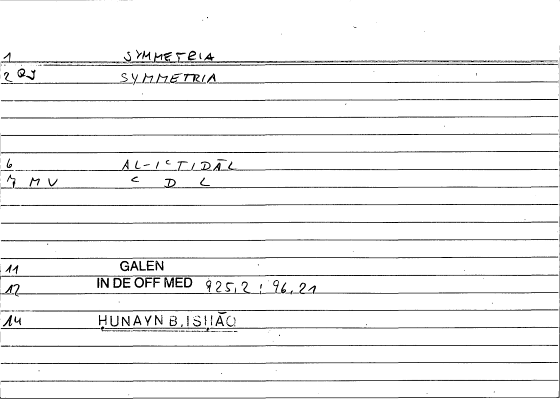 1 SYMMETRIA
2 QJ SYMMETRIA
6 AL-IʿTIDĀL
7 MV ʿ D L
11 GALEN
12 IN DE OFF MED 925,2 ; 96,21
14 HUNAYN B. ISḤĀQ